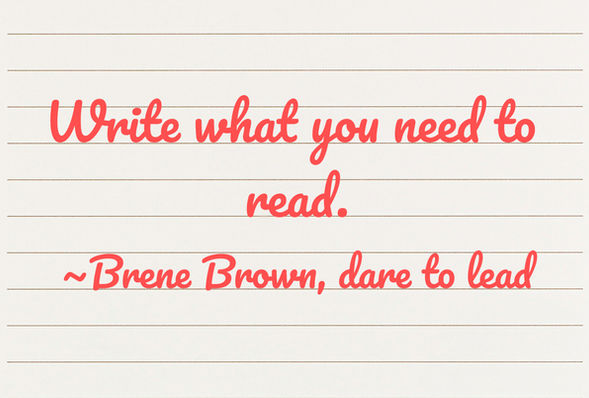 Write what you need to
read.
~Brene Brown, dare to lead